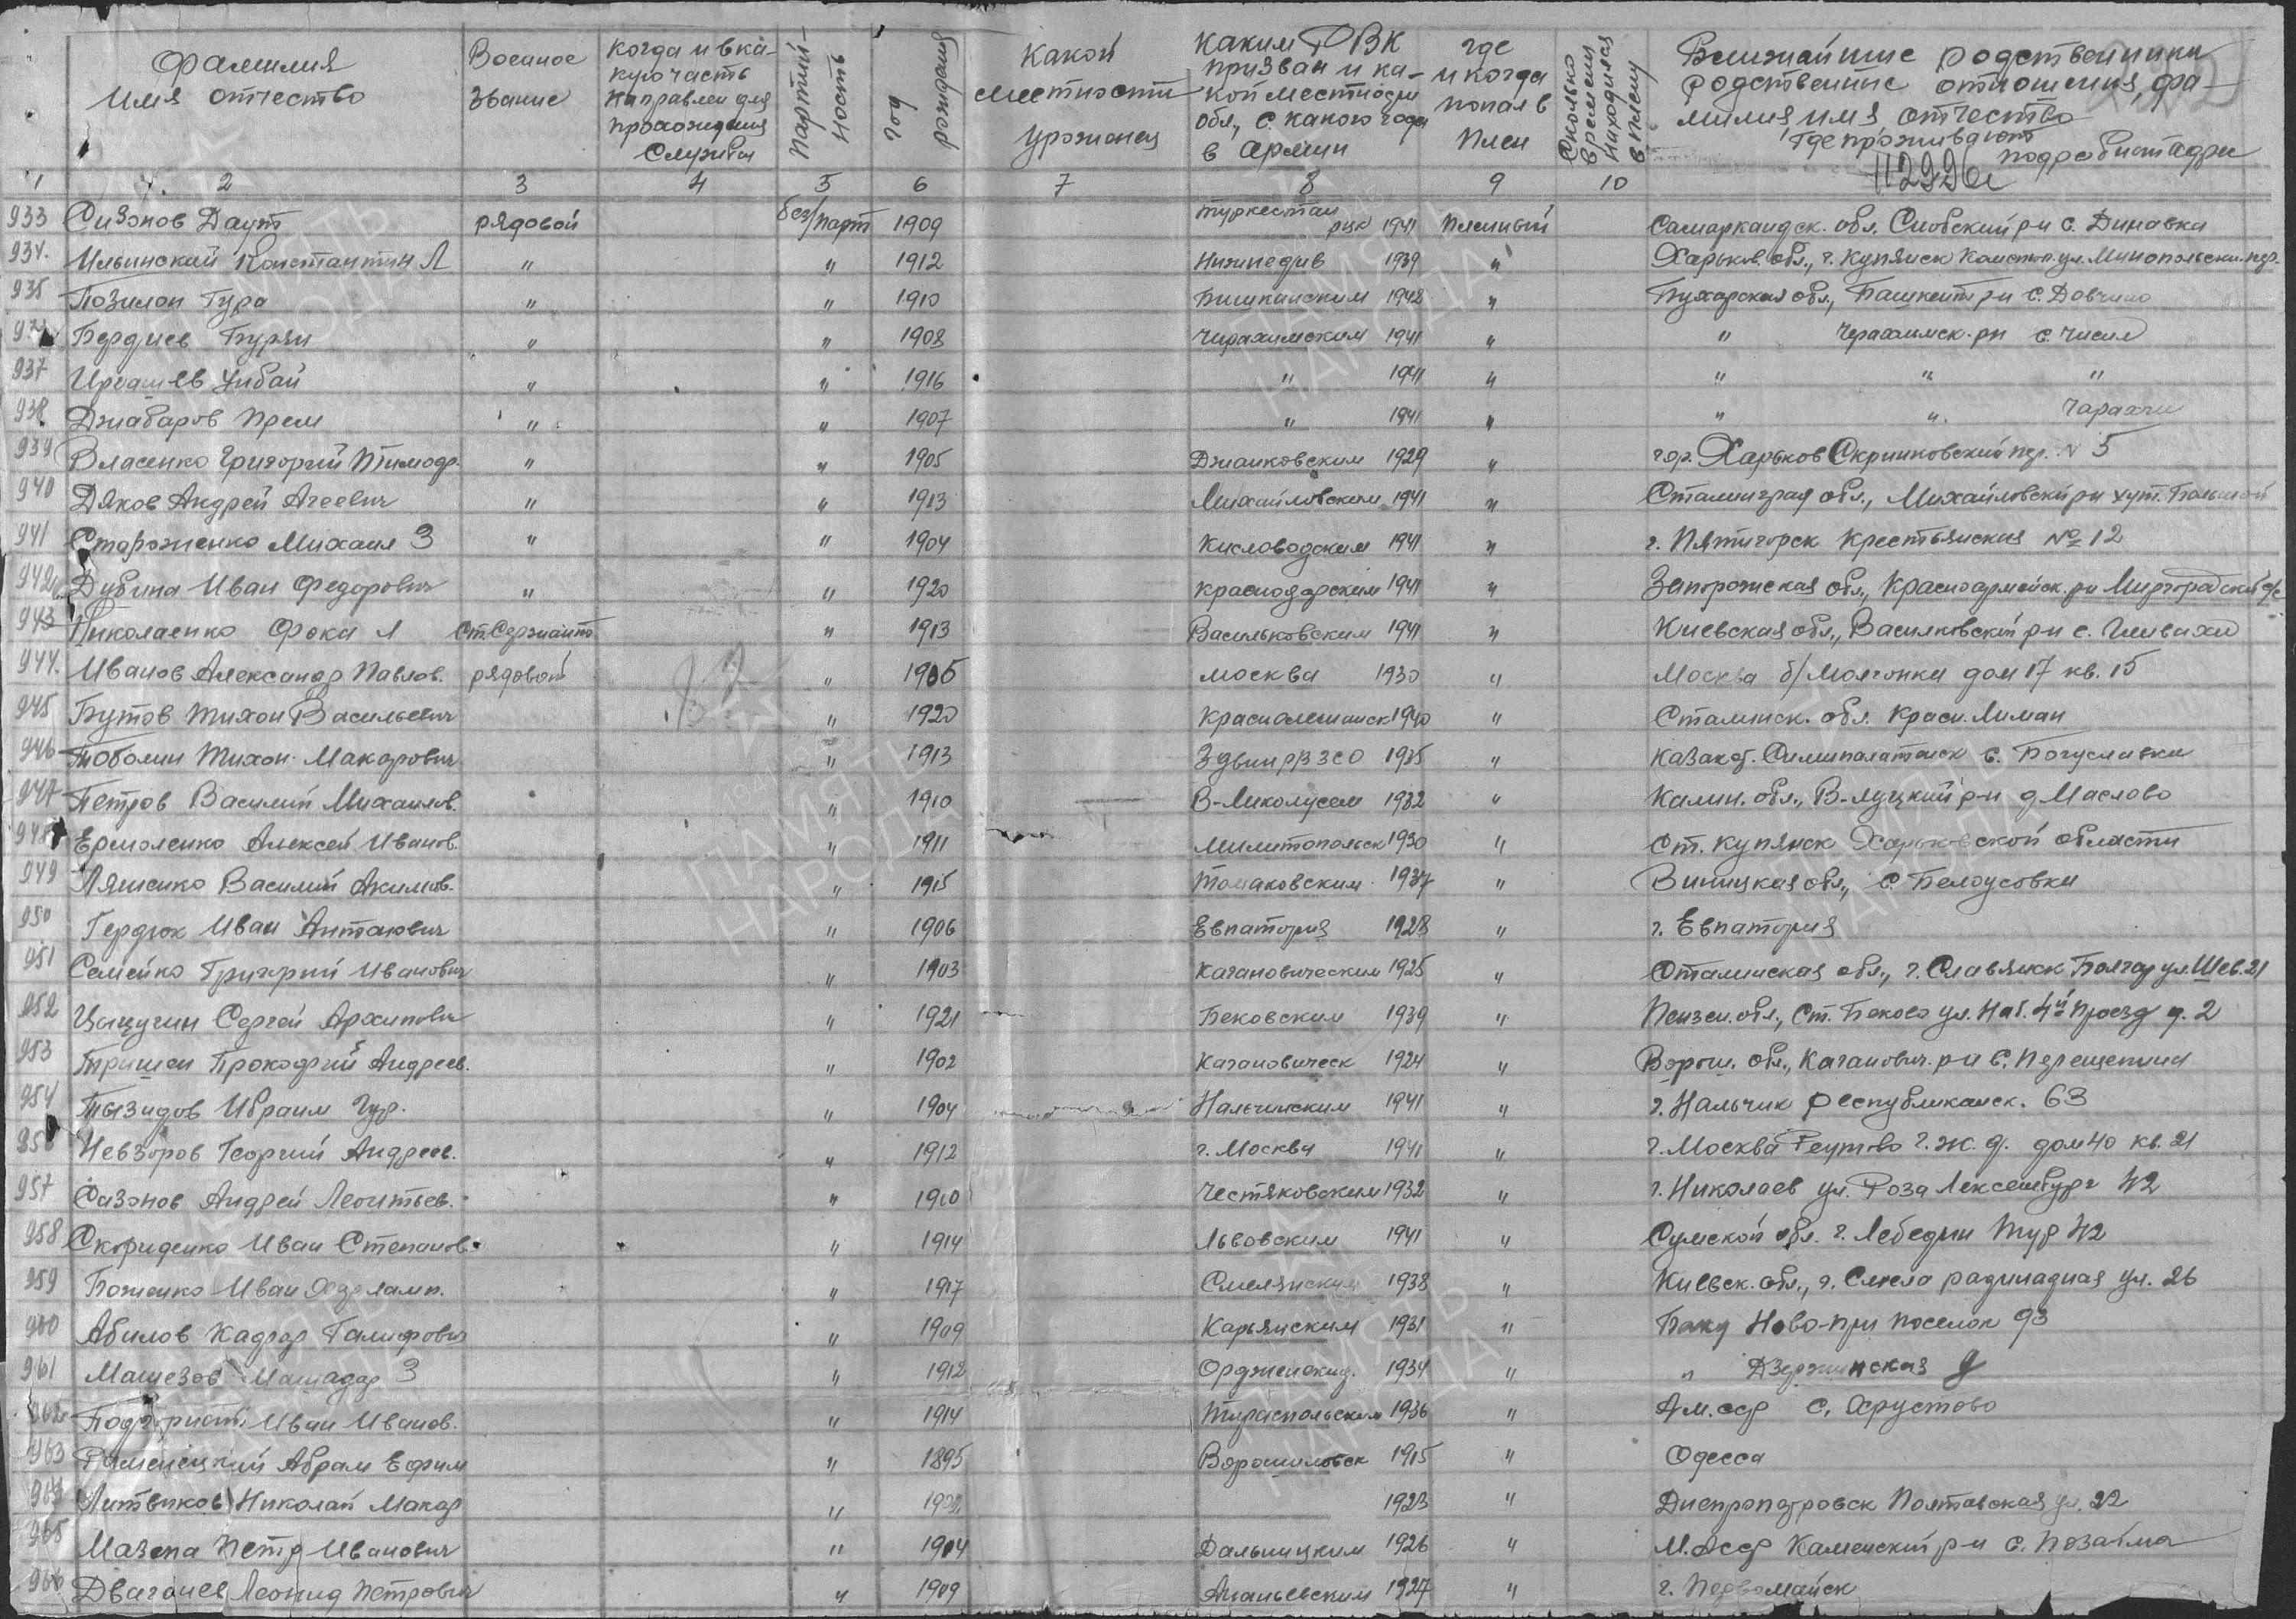 Фамилия Имя отчество | Военное звание | Когда и в какую часть направлен для прохождения службы | Партийность | Год рождения | Какой местности уроженец | Каким РВК призван и какой местности обл., с какого года в армии | Где и когда попал в плен | Сколько времени находился в плену | Ближайшие родственники родственные отношения, фамилия имя отчество где проживают подробный адрес
1 2 3 4 5 6 7 8 9 10 11
933 Сизонов Даут рядовой без/парт 1909 туркестан 1941 Пленный Самаркандск. обл. р-н с. Динавка
934. Ильинский Константин Л " " 1912 Нижнедив 1939 " Харьков. обл., г. Купянск
935 Позилон Тура " " 1910 1942 " Бухарская обл., р-н с.
Бердиев Буряи " " 1908 Чирахимским 1941 " " р-н с. Чисил
937 Иргашев Унбай " " 1916 " 1941 " " " "
938 Джабаров Прем " " 1907 " 1941 " " "
939 Власенко Григорий Тимофе. " " 1905 Джанковским 1929 " гор. Харьков Скрипковский пер. N 5
940 Дяков Андрей Агеевич " " 1913 Михайловским 1941 " Сталинград обл., Михайловский р-н хут. Большой
941 Стороженко Михаил З " " 1904 Кисловодским 1941 " г. Пятигорск Крестьянская № 12
942 Дубина Иван Федорович " " 1920 Краснодарским 1941 " Запорожская обл., Красноармейск. р-н Миргородский с/с
943 Николаенко Фока Л Ст. Сержант " 1913 Васильковским 1941 " Киевская обл., Васильковский р-н с. Гливахи
944. Иванов Александр Павлов. рядовой " 1905 Москва 1930 " Москва дом 17 кв. 15
945 Бутов Тихон Васильевич " 1920 1940 " Сталинск. обл. Красн. Лиман
946 Тоболин Тихон Макарович " 1913 1935 " Семипалатинск с. Богуславка
947 Петров Василий Михайлов. " 1910 1932 " Калин. обл., В-Луцкий р-н д Маслово
948 Ермоленко Алексей Иванов. " 1911 Милитопольск 1930 " Ст. Купянск Харьковской области
949 Ляшенко Василий Акимов. " 1915 Томаковским 1937 " Виницкая обл., с. Белоусовка
950 Гердюк Иван Антонович " 1906 Евпатория 1928 " г. Евпатория
951 Семейко Григорий Иванович " 1903 Кагановическим 1925 " Сталинская обл., г. Славянск ул. Шев. 21
952 Цыцугин Сергей Архипович " 1921 Бековским 1939 " Пензен. обл., Ст. Беково ул. Наб. 4й проезд д. 2
953 Тришен Прокофий Андреев. " 1902 Кагановическ 1924 " Ворош. обл., Каганович. р-н с. Перещепина
954 Тызидов Ибраим Гур. " 1904 Нальчинским 1941 " г. Нальчик Республиканск. 63
Невзоров Георгий Андреев. " 1912 г. Москва 1941 " г. Москва Реутово г.ж.д. дом 40 кв. 21
957 Сазонов Андрей Леонтьев. " 1910 Честяковским 1932 " г. Николаев ул. Роза Лексембург 42
958 Скориденко Иван Степанов. " 1914 Львовским 1941 " Сумской обл. г. Лебедин 42
959 Боженко Иван " 1917 Смелянским 1938 " Киевск. обл., г. Смела радиладная ул. 26
960 Абилов Кадрар Галифович " 1909 Карьянским 1931 " Баку Ново-при поселок 93
961 Машезов Машадар З " 1912 Ордженикид. 1934 " " Дзержинская 9
962 Подгорный Иван Иванов. " 1914 Тираспольским 1936 " АМ.сср с. Хрустово
963 Раменецкий Абрам Ефрим " 1895 Ворошиловск 1915 " Одесса
964 Литвиков Николай Макар " 1923 " Днепропетровск Полтавская ул. 22
965 Мазепа Петр Иванович " 1904 Дальницким 1926 " М.Асср Каменский р-н с.
966 Леонид Петрович " 1909 Ананьевским 1927 " г. Первомайск
ПАМЯТЬ НАРОДА